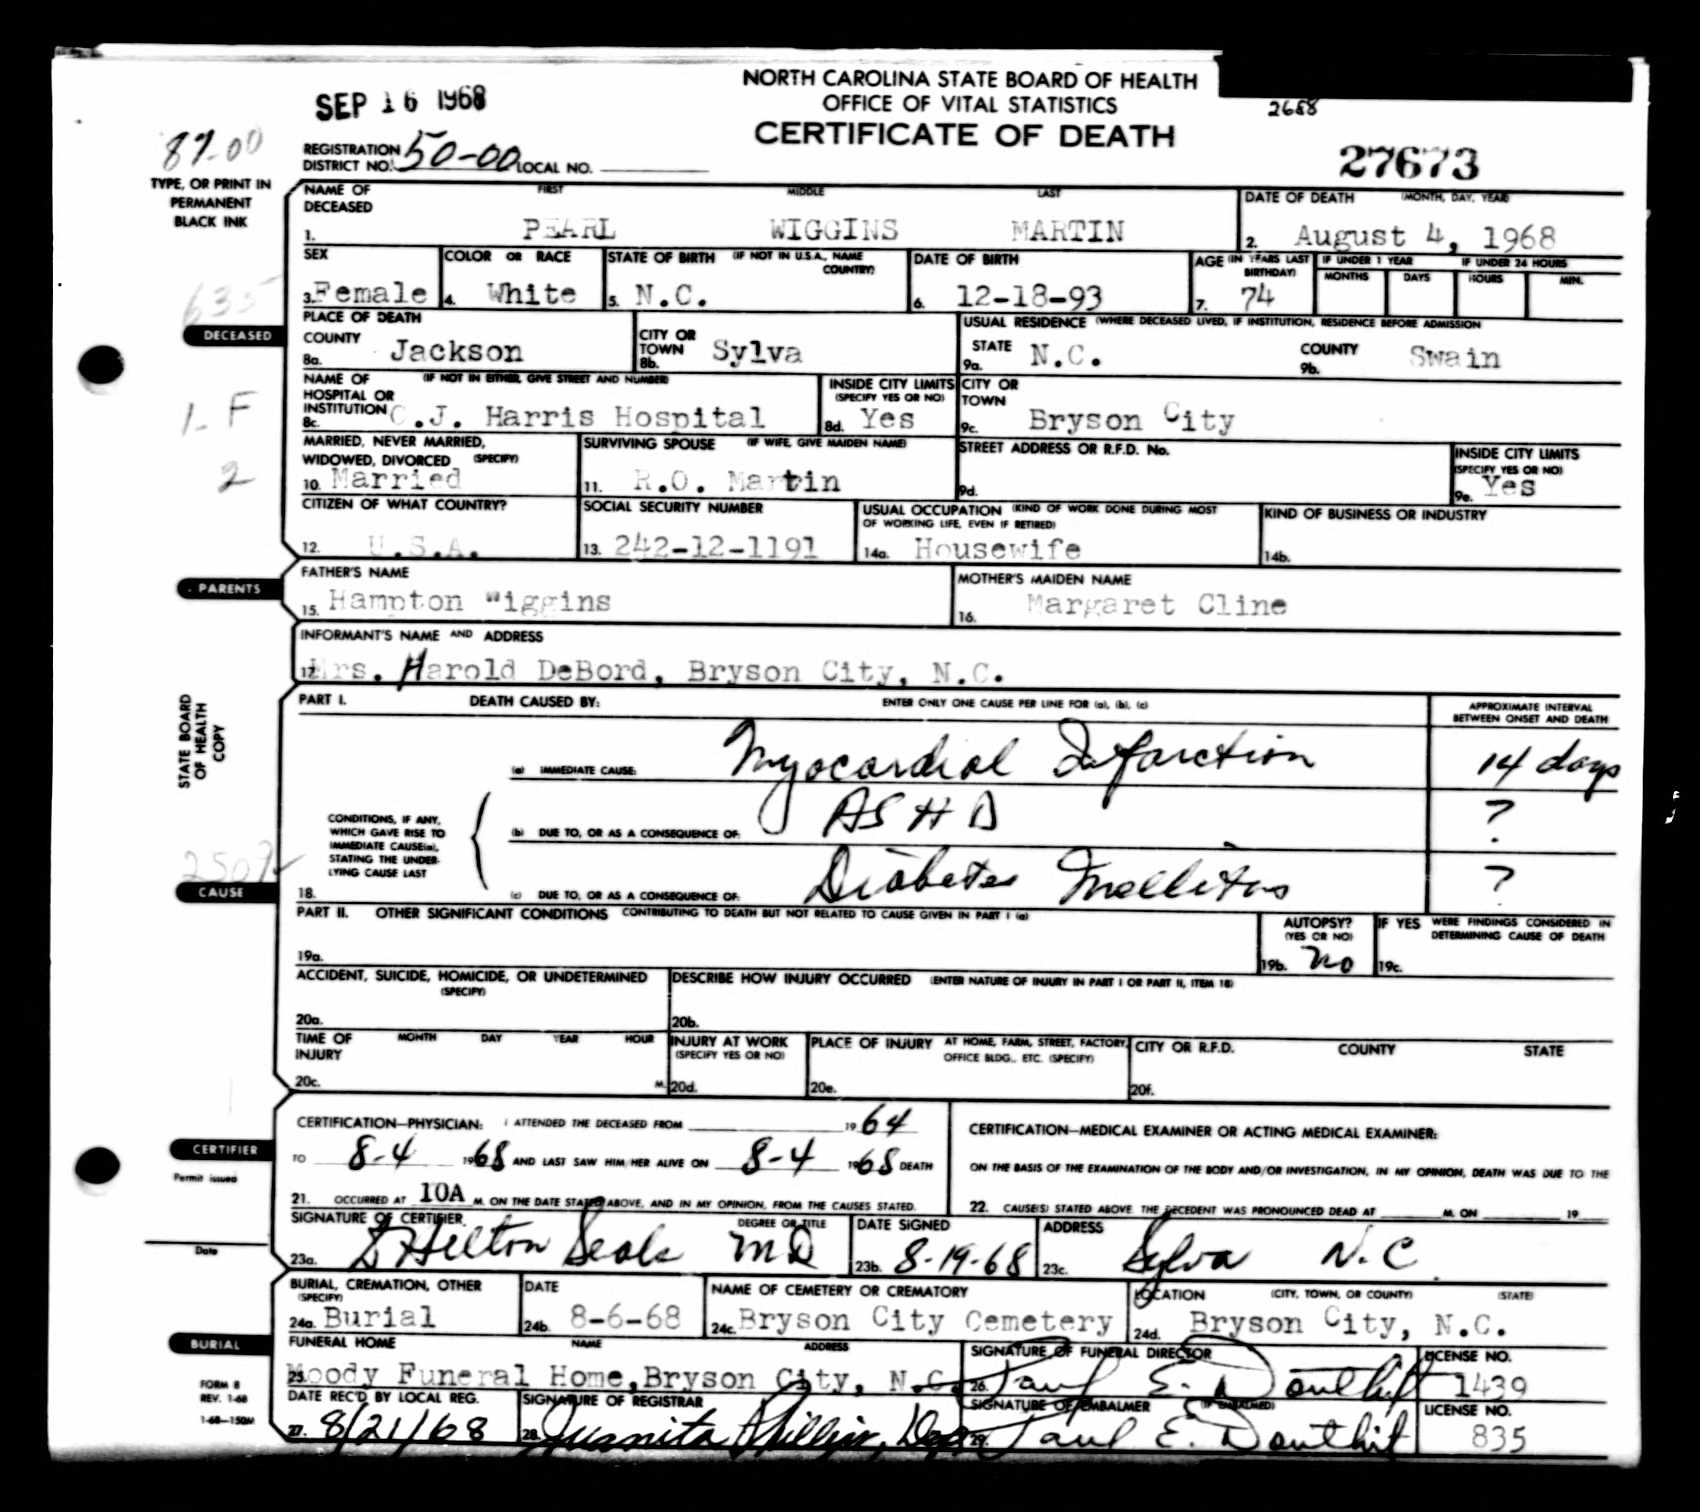 NORTH CAROLINA STATE BOARD OF HEALTH
OFFICE OF VITAL STATISTICS
CERTIFICATE OF DEATH
SEP 16 1968
2658
27673
87-00
REGISTRATION DISTRICT NO. 50-00 LOCAL NO.
TYPE, OR PRINT IN PERMANENT BLACK INK
NAME OF DECEASED FIRST MIDDLE LAST
1. PEARL WIGGINS MARTIN
DATE OF DEATH (MONTH, DAY, YEAR)
2. August 4, 1968
SEX
3. Female
COLOR OR RACE
4. White
STATE OF BIRTH (IF NOT IN U.S.A., NAME COUNTRY)
5. N.C.
DATE OF BIRTH
6. 12-18-93
AGE (IN YEARS LAST BIRTHDAY)
7. 74
IF UNDER 1 YEAR MONTHS DAYS
IF UNDER 24 HOURS HOURS MIN.
635
DECEASED
PLACE OF DEATH
COUNTY
8a. Jackson
CITY OR TOWN
8b. Sylva
USUAL RESIDENCE (WHERE DECEASED LIVED, IF INSTITUTION, RESIDENCE BEFORE ADMISSION
STATE
9a. N.C.
COUNTY
9b. Swain
NAME OF HOSPITAL OR INSTITUTION (IF NOT IN EITHER, GIVE STREET AND NUMBER)
8c. C.J. Harris Hospital
INSIDE CITY LIMITS (SPECIFY YES OR NO)
8d. Yes
CITY OR TOWN
9c. Bryson City
1- F
2
MARRIED, NEVER MARRIED, WIDOWED, DIVORCED (SPECIFY)
10. Married
SURVIVING SPOUSE (IF WIFE, GIVE MAIDEN NAME)
11. R.O. Martin
STREET ADDRESS OR R.F.D. No.
9d.
INSIDE CITY LIMITS (SPECIFY YES OR NO)
9e. Yes
CITIZEN OF WHAT COUNTRY?
12. U.S.A.
SOCIAL SECURITY NUMBER
13. 242-12-1191
USUAL OCCUPATION (KIND OF WORK DONE DURING MOST OF WORKING LIFE, EVEN IF RETIRED)
14a. Housewife
KIND OF BUSINESS OR INDUSTRY
14b.
PARENTS
FATHER'S NAME
15. Hampton Wiggins
MOTHER'S MAIDEN NAME
16. Margaret Cline
INFORMANT'S NAME AND ADDRESS
17. Mrs. Harold DeBord, Bryson City, N.C.
STATE BOARD OF HEALTH COPY
PART I. DEATH CAUSED BY: ENTER ONLY ONE CAUSE PER LINE FOR (a), (b), (c)
APPROXIMATE INTERVAL BETWEEN ONSET AND DEATH
(a) IMMEDIATE CAUSE: Myocardial Infarction 14 days
CONDITIONS, IF ANY, WHICH GAVE RISE TO IMMEDIATE CAUSE(a), STATING THE UNDERLYING CAUSE LAST
(b) DUE TO, OR AS A CONSEQUENCE OF: ASHD ?
18. (c) DUE TO, OR AS A CONSEQUENCE OF: Diabetes Mellitus ?
CAUSE
PART II. OTHER SIGNIFICANT CONDITIONS CONTRIBUTING TO DEATH BUT NOT RELATED TO CAUSE GIVEN IN PART I (a)
19a.
AUTOPSY? (YES OR NO)
19b. no
IF YES WERE FINDINGS CONSIDERED IN DETERMINING CAUSE OF DEATH
19c.
ACCIDENT, SUICIDE, HOMICIDE, OR UNDETERMINED (SPECIFY)
20a.
DESCRIBE HOW INJURY OCCURRED (ENTER NATURE OF INJURY IN PART I OR PART II, ITEM 18)
20b.
TIME OF INJURY MONTH DAY YEAR HOUR
20c. M.
INJURY AT WORK (SPECIFY YES OR NO)
20d.
PLACE OF INJURY AT HOME, FARM, STREET, FACTORY, OFFICE BLDG., ETC. (SPECIFY)
20e.
CITY OR R.F.D. COUNTY STATE
20f.
CERTIFIER
Permit issued
Date
CERTIFICATION—PHYSICIAN: I ATTENDED THE DECEASED FROM 1964
TO 8-4 1968 AND LAST SAW HIM/HER ALIVE ON 8-4 1968 DEATH
21. OCCURRED AT 10A M. ON THE DATE STATED ABOVE, AND IN MY OPINION, FROM THE CAUSES STATED.
CERTIFICATION—MEDICAL EXAMINER OR ACTING MEDICAL EXAMINER:
ON THE BASIS OF THE EXAMINATION OF THE BODY AND/OR INVESTIGATION, IN MY OPINION, DEATH WAS DUE TO THE
22. CAUSE(S) STATED ABOVE THE DECEDENT WAS PRONOUNCED DEAD AT M. ON 19
SIGNATURE OF CERTIFIER DEGREE OR TITLE
23a. Hilton Seals MD
DATE SIGNED
23b. 8-19-68
ADDRESS
23c. Sylva N.C.
BURIAL, CREMATION, OTHER (SPECIFY)
24a. Burial
DATE
24b. 8-6-68
NAME OF CEMETERY OR CREMATORY
24c. Bryson City Cemetery
LOCATION (CITY, TOWN, OR COUNTY) (STATE)
24d. Bryson City, N.C.
BURIAL
FUNERAL HOME NAME ADDRESS
25. Moody Funeral Home, Bryson City, N.C.
SIGNATURE OF FUNERAL DIRECTOR
26. Paul E. Douthit
LICENSE NO.
1439
FORM 8
REV. 1-68
1-68—150M
DATE REC'D BY LOCAL REG.
27. 8/21/68
SIGNATURE OF REGISTRAR
28. Juanita Phillips, Dep.
SIGNATURE OF EMBALMER (IF EMBALMED)
29. Paul E. Douthit
LICENSE NO.
835